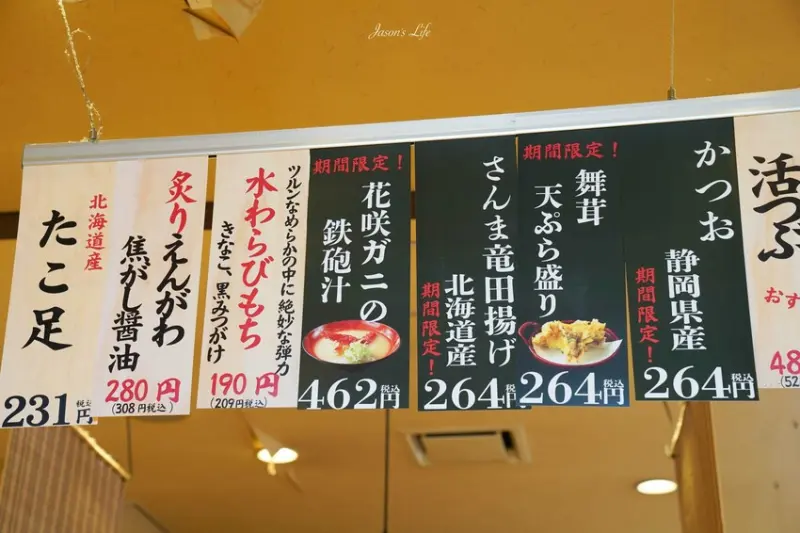 Jason's Life
北海道産
たこ足
231円
税込
炙りえんがわ
焦がし醤油
280円
(308円税込)
ツルンなめらかの中に 絶妙な弾力
水わらびもち
きなこ、黒みつがけ
190円
(209円税込)
期間限定！
花咲ガニの
鉄砲汁
462円
税込
さんま竜田揚げ
北海道産
期間限定！
264円
税込
期間限定！
舞茸
天ぷら盛り
264円
税込
かつお
静岡県産
期間限定！
264円
税込
活つぶ
おす
48
(52